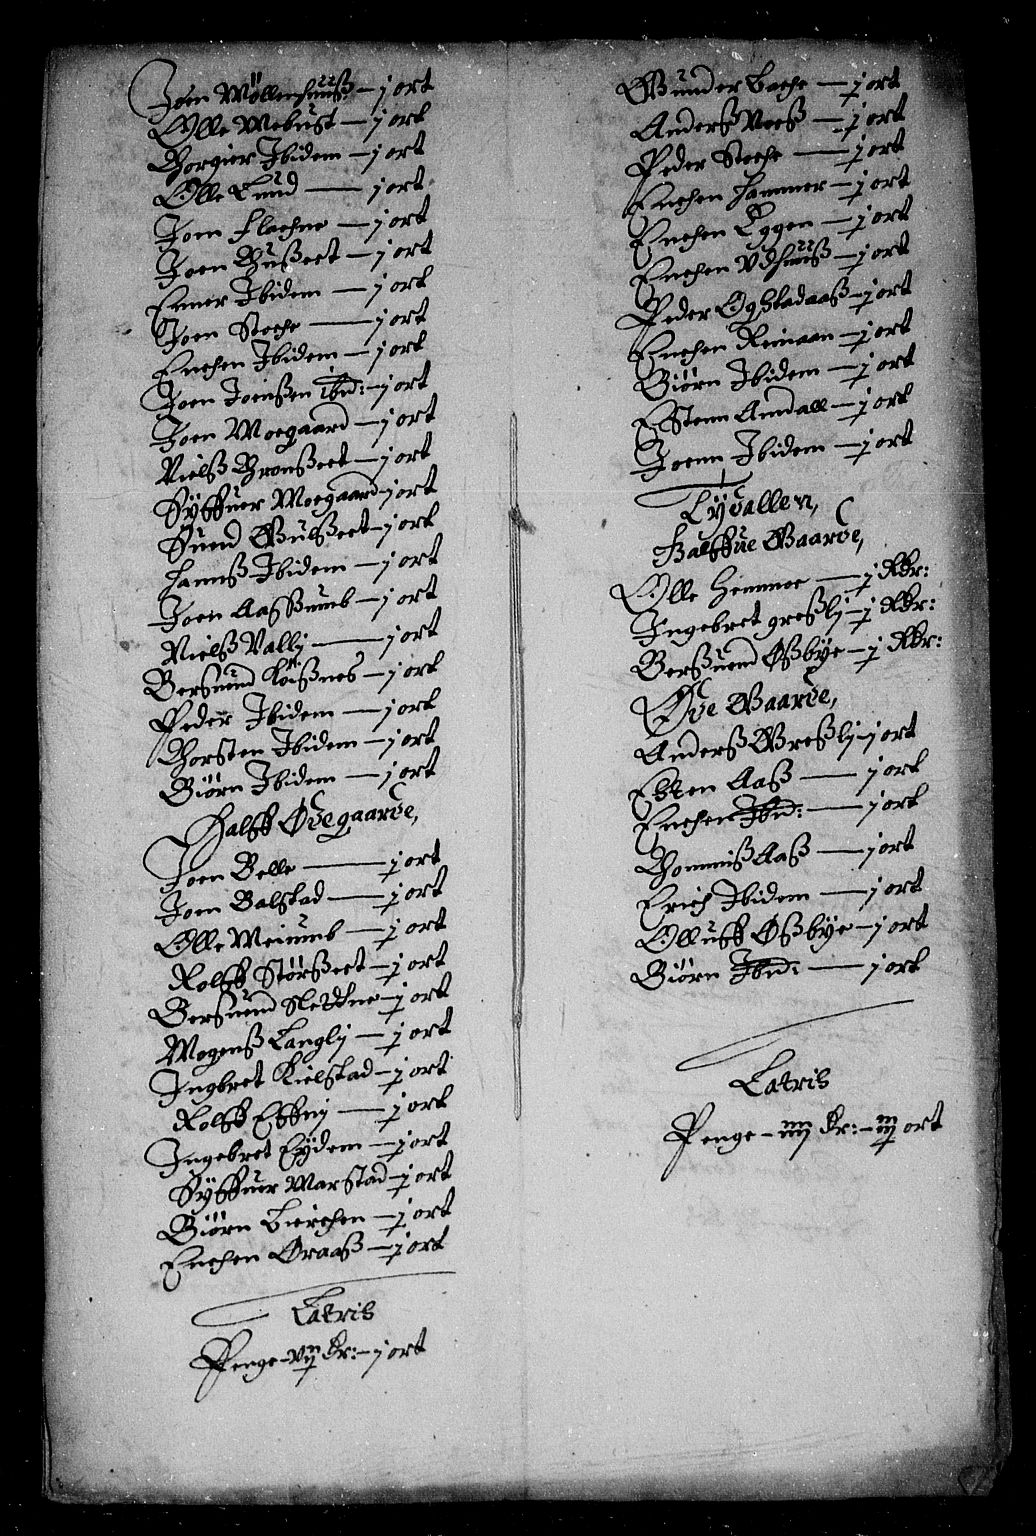 Joen Møllenhuuß – j ort
Olle Mebust – j ort
Thorgier Ibidem – j ort
Olle Lund – j ort
Joen Flackne – j ort
Joen Bußeet – j ort
Einer Ibidem – j ort
Joen Stocke – j ort
Enchen Ibidem – j ort
Joen Joenßen ibid: – j ort
Joen Moegaard – j ort
Nielß Bronßeet – j ort
Syffuer Moegaard – j ort
Suend Gulßeet – j ort
Hannß Ibidem – j ort
Joen Aasßumb – j ort
Nielß Vallj – j ort
Bersuend Løißnes – j ort
Peder Ibidem – j ort
Thorsten Ibidem – j ort
Biørn Ibidem – j ort
Halff Ødegaarde,
Joen Belle – j ort
Joen Balstad – j ort
Olle Meiumb – j ort
Rolff Størßeet – j ort
Bersuend Slettne – j ort
Mogenß Langlj – j ort
Ingbret Kielstad – j ort
Rolff Effnj – j ort
Ingebret Eydem – j ort
Syffuer Marstad – j ort
Biørn Lierchen – j ort
Enchen Øraaß – j ort
Lateris
Penge – vij dr: – j ort
Gunder Backe – j ort
Anderß Moeß – j ort
Peder Stocke – j ort
Enchen Hammer – j ort
Enchen Eggen – j ort
Enchen Udhuuß – j ort
Peder Ogstadaaß – j ort
Enchen Reinaan – j ort
Biørn Ibidem – j ort
Esten Amdall – j ort
Joenn Ibidem – j ort
Tydallen,
Halffue Gaarde,
Olle Hemmoe – j Rdr:
Ingebret Greßlj – j Rdr:
Berßuend Øßbye – j Rdr:
Øde Gaarde,
Anderß Greßlj – j ort
Esten Aaß – j ort
Enchen Ibid: – j ort
Thommiß Aaß – j ort
Erich Ibidem – j ort
Olluff Øßbye – j ort
Biørn Ibid: – j ort
Lateris
Penge – iiiij dr: – iij ort